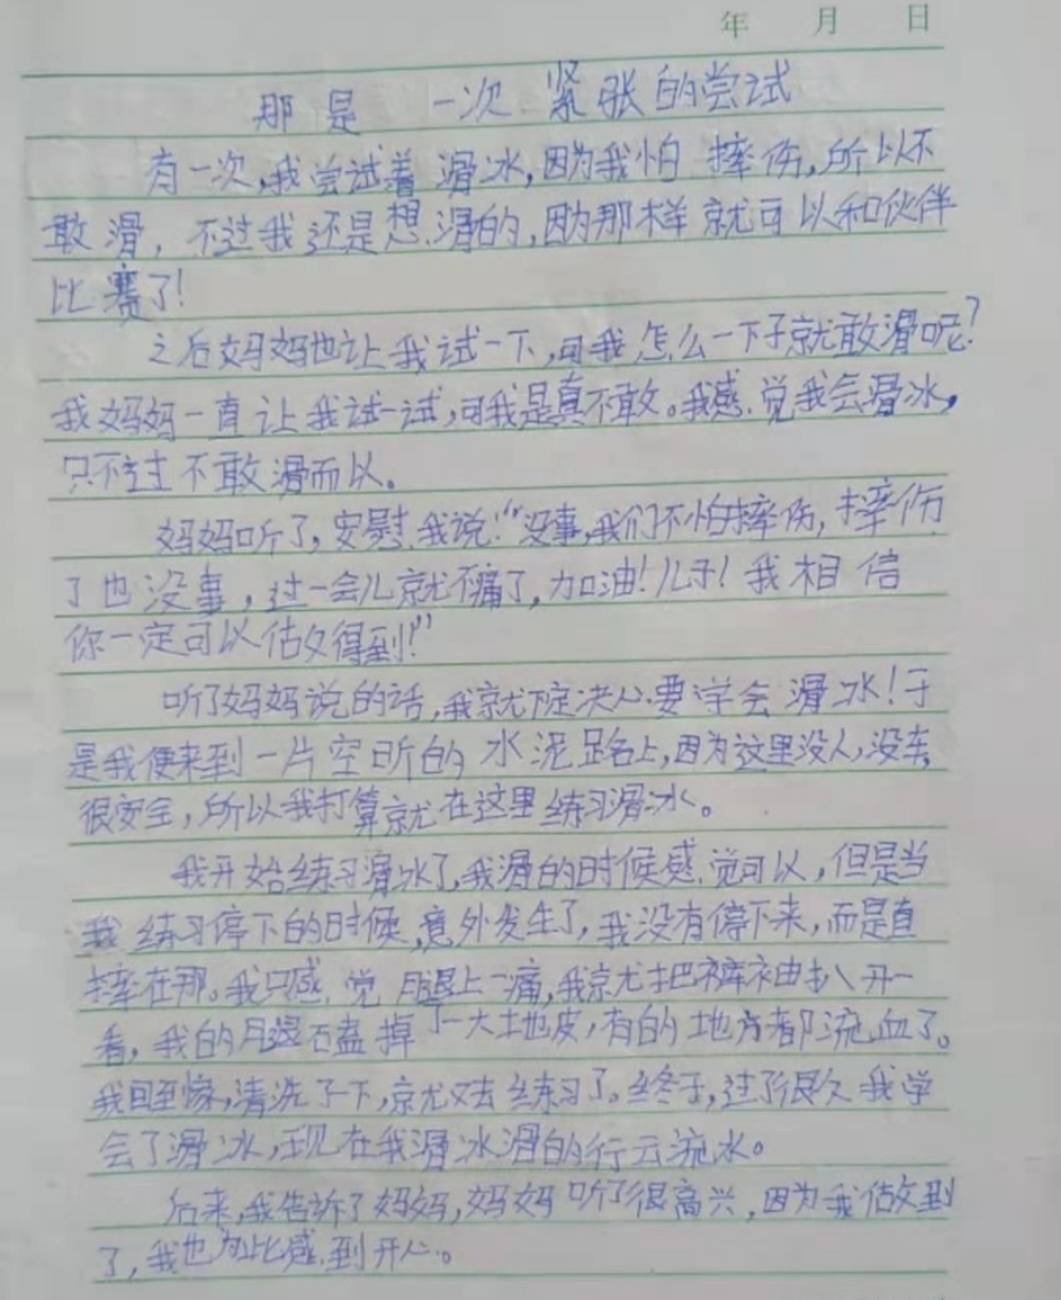 年 月 日
那是一次紧张的尝试
有一次,我尝试着滑冰,因为我怕摔伤,所以不
敢滑,不过我还是想滑的,因为那样就可以和伙伴
比赛了!
之后妈妈也让我试一下,可我怎么一下子就敢滑呢?
我妈妈一直让我试一试,可我是真不敢。我感觉我会滑冰,
只不过不敢滑而以。
妈妈听了,安慰我说:“没事,我们不怕摔伤,摔伤
了也没事,过一会儿就不痛了,加油!儿子!我相信
你一定可以做得到!”
听了妈妈说的话,我就下定决心要学会滑冰!于
是我便来到一片空旷的水泥路上,因为这里没人,没车,
很安全,所以我打算就在这里练习滑冰。
我开始练习滑冰了,我滑的时候感觉可以,但是当
我练习停下的时候,意外发生了,我没有停下来,而是直
摔在那。我只感觉腿上一痛,我就把裤袖扒开一
看,我的腿磕掉了一大块地皮,有的地方都流血了。
我回到家,清洗了一下,就又去练习了。终于,过了很久我学
会了滑冰,现在我滑冰滑的行云流水。
后来,我告诉了妈妈,妈妈听了很高兴,因为我做到
了,我也为此感到开心。